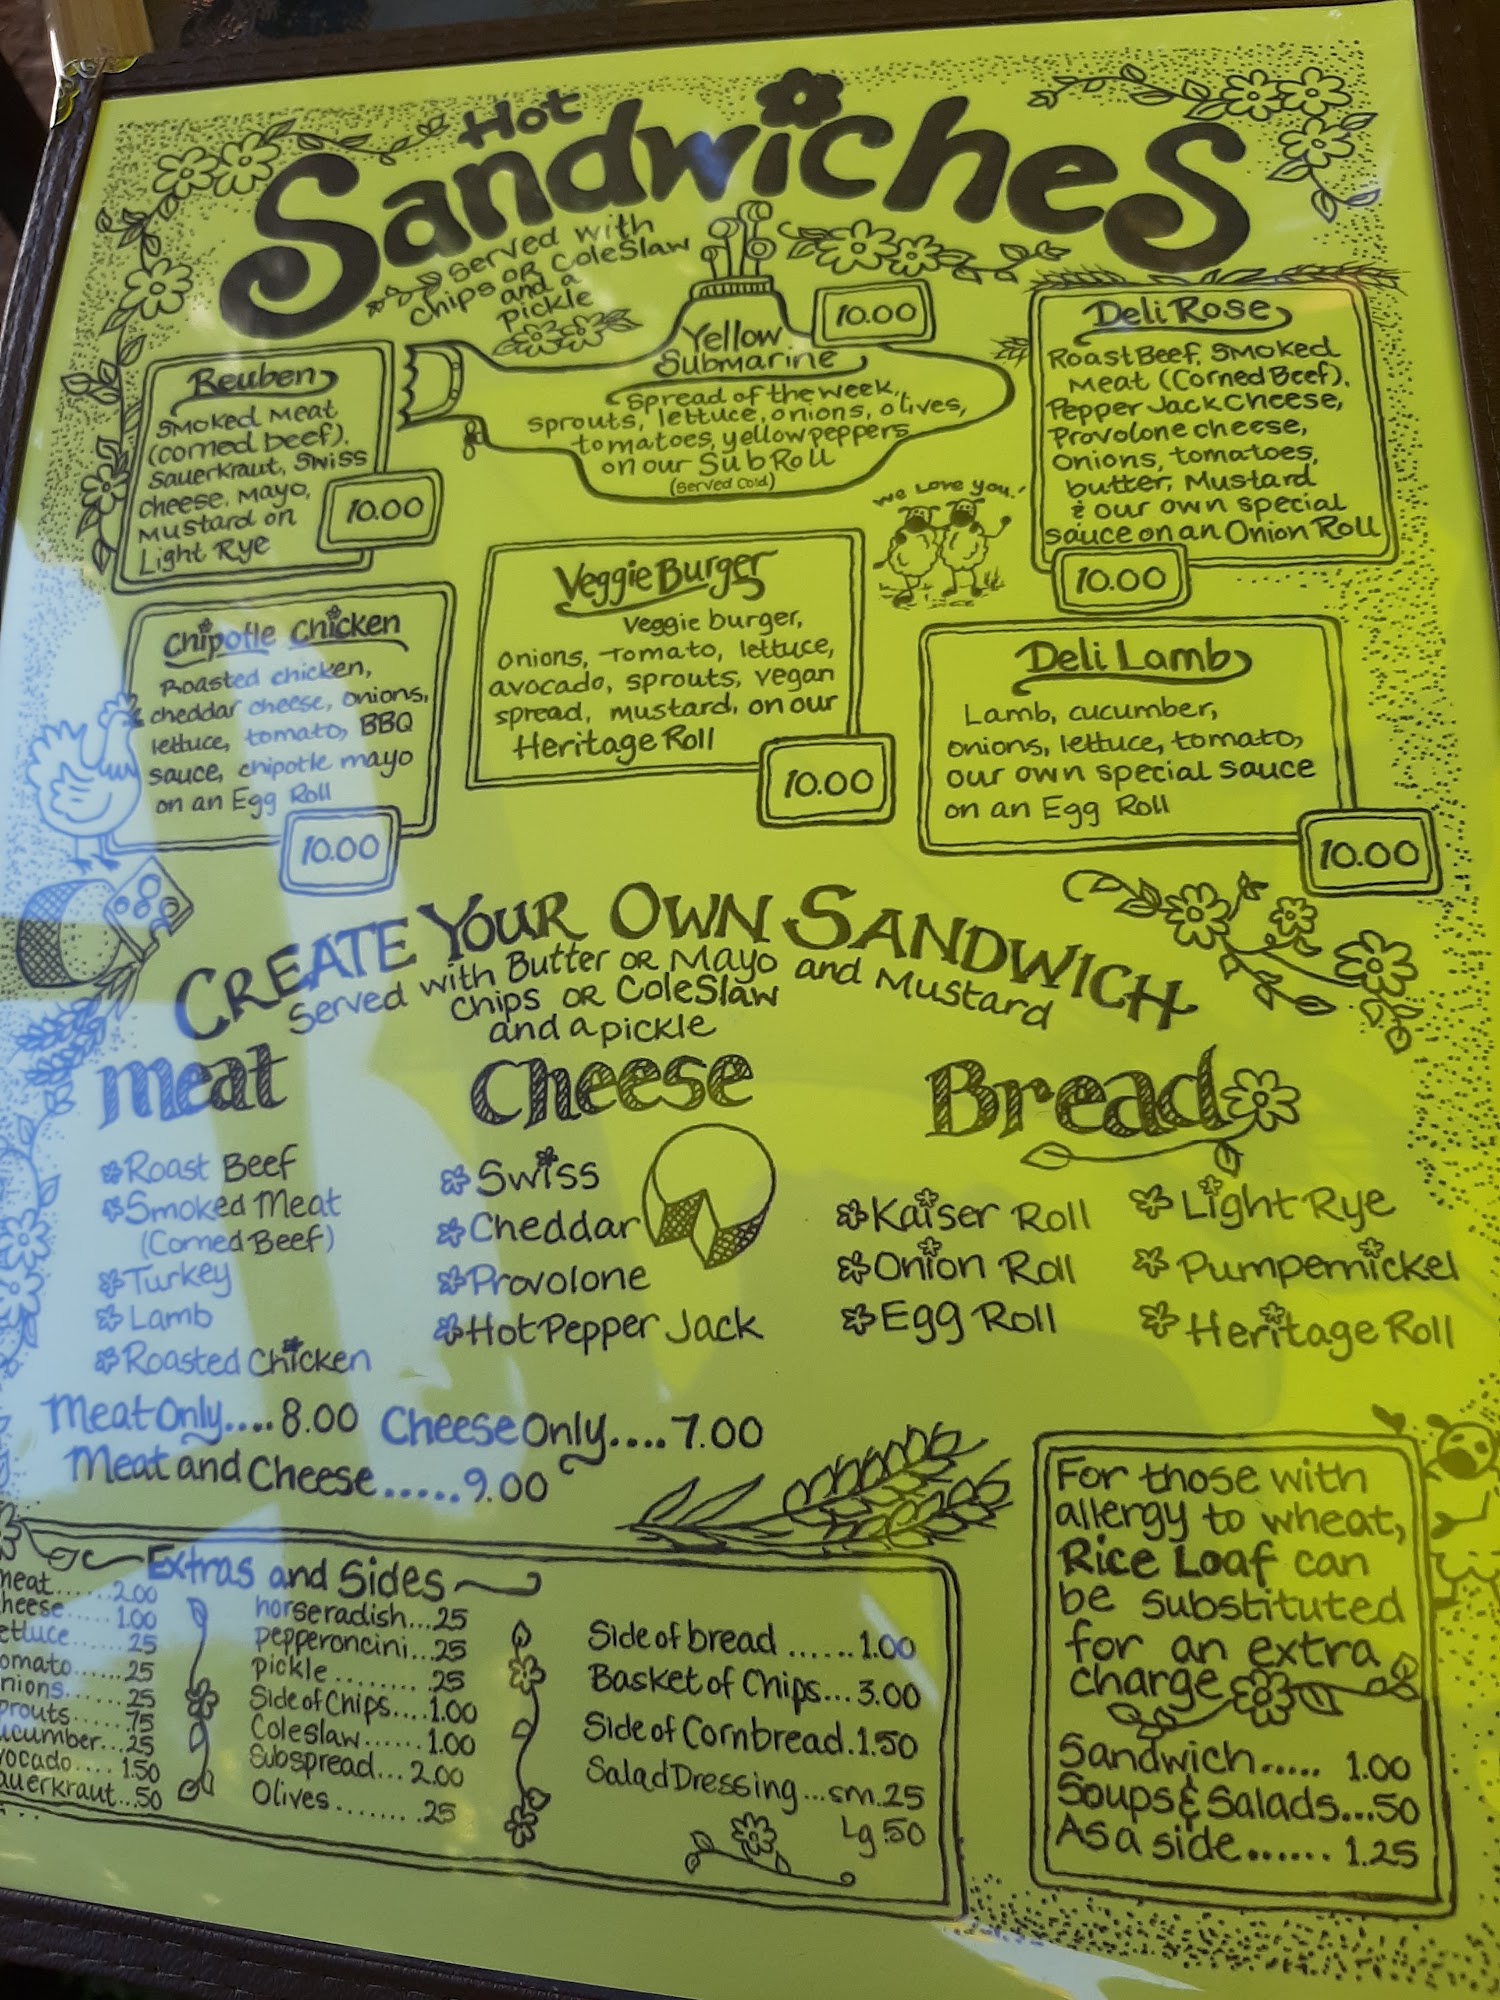 Hot
Sandwiches
Served with
Chips OR ColeSlaw
and a
Pickle
Reuben
Smoked Meat
(corned beef).
Sauerkraut, Swiss
cheese, Mayo,
Mustard on
Light Rye
10.00
Yellow
Submarine
10.00
Spread of the week,
sprouts, lettuce, onions, olives,
tomatoes, yellow peppers
on our Sub Roll
(Served Cold)
Deli Rose
Roast Beef, Smoked
Meat (Corned Beef).
Pepper Jack Cheese,
Provolone cheese,
Onions, tomatoes,
butter, Mustard
& our own special
sauce on an Onion Roll
10.00
We Love you!
Chipotle Chicken
Roasted chicken,
cheddar cheese, onions,
lettuce, tomato, BBQ
sauce, chipotle mayo
on an Egg Roll
10.00
Veggie Burger
Veggie burger,
onions, tomato, lettuce,
avocado, sprouts, vegan
spread, mustard, on our
Heritage Roll
10.00
Deli Lamb
Lamb, cucumber,
onions, lettuce, tomato,
our own special sauce
on an Egg Roll
10.00
CREATE YOUR OWN SANDWICH
Served with Butter OR Mayo and Mustard
Chips OR ColeSlaw
and a pickle
Meat
Roast Beef
Smoked Meat
(Corned Beef)
Turkey
Lamb
Roasted Chicken
Cheese
Swiss
Cheddar
Provolone
Hot Pepper Jack
Bread
Kaiser Roll
Onion Roll
Egg Roll
Light Rye
Pumpernickel
Heritage Roll
Meat Only.... 8.00 Cheese Only.... 7.00
Meat and Cheese ..... 9.00
Extras and Sides
meat......2.00
heese......1.00
ettuce......25
omato......25
nions......25
prouts......75
ucumber...25
vocado....1.50
auerkraut...50
horseradish...25
pepperoncini...25
pickle.........25
Side of Chips....1.00
Coleslaw......1.00
Subspread...2.00
Olives........25
Side of bread ......1.00
Basket of Chips...3.00
Side of Cornbread.1.50
Salad Dressing...sm.25
Lg.50
For those with
allergy to wheat,
Rice Loaf can
be substituted
for an extra
charge
Sandwich..... 1.00
Soups & Salads...50
As a side....... 1.25